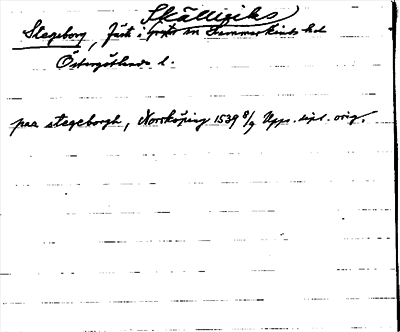 Skälligiks
Stegeborg, fäst i Hammarkinds hd
Östergötlands l.
paa stegeborgh, Norrköping 1539 8/9 Upps. dipl. orig.